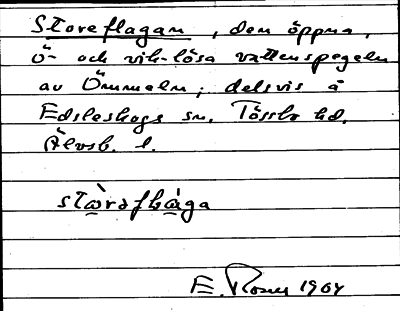 Storeflagan, den öppna,
ö- och vik-lösa vattenspegeln
av Ömmeln; delvis å
Edsleskogs sn. Tössbo hd.
Älvsb. l.
stɷ̀rəflɷ́ga
E. Rosen 1904